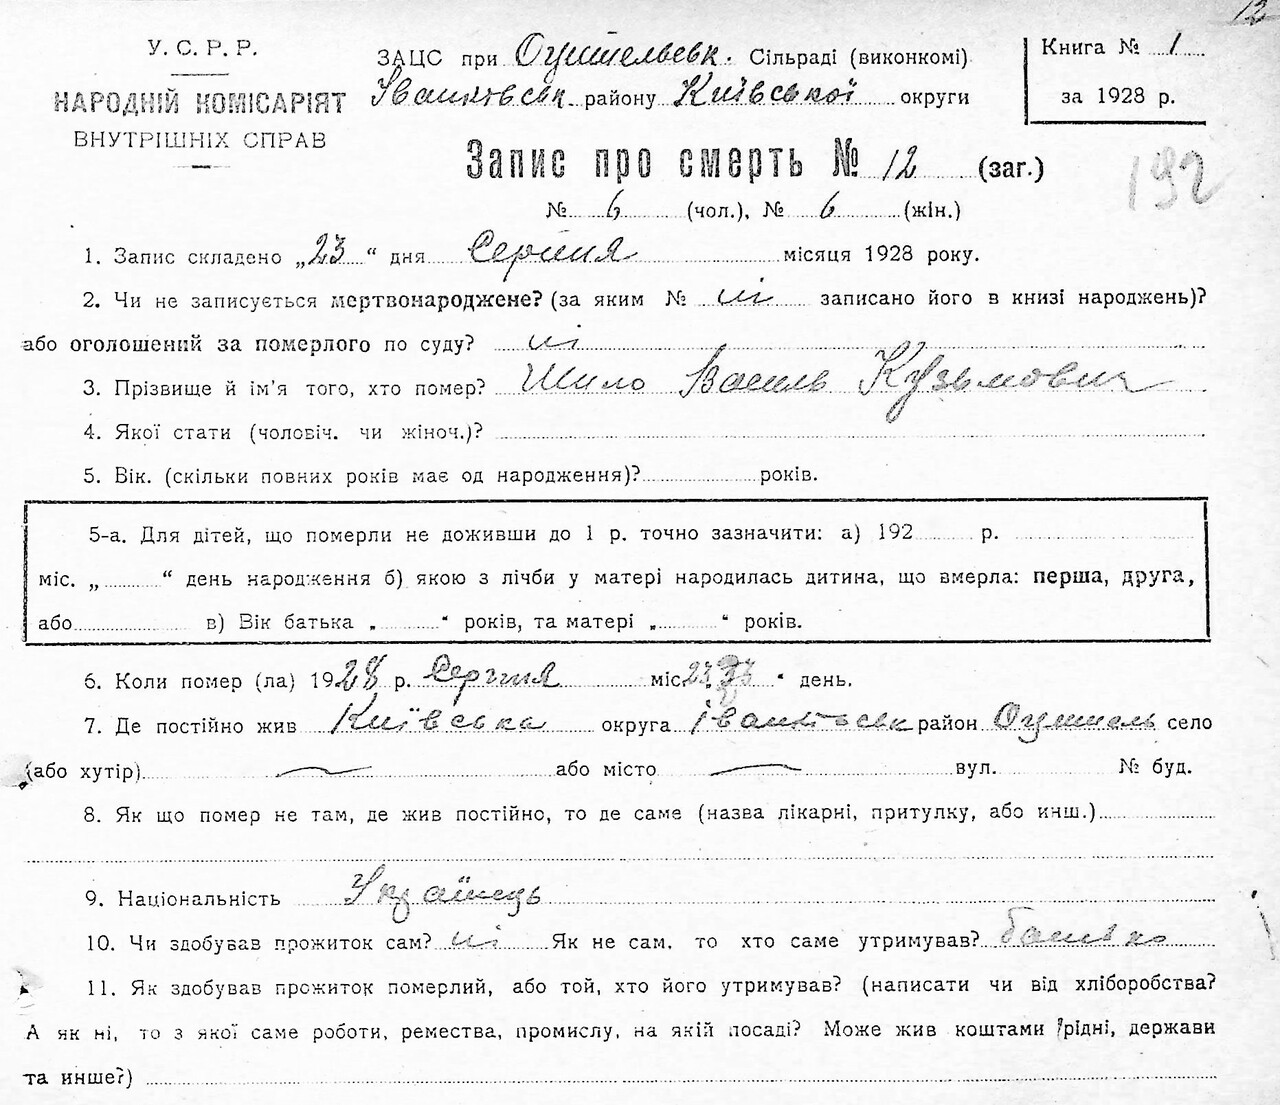 12
У. С. Р. Р.
НАРОДНІЙ КОМІСАРІЯТ
ВНУТРІШНІХ СПРАВ
ЗАЦС при Оцительськ. Сільраді (виконкомі)
Іванківськ. району Київської округи
Книга № 1
за 1928 р.
Запис про смерть № 12 (заг.)
192
№ 6 (чол.), № 6 (жін.)
1. Запис складено „23“ дня Серпня місяця 1928 року.
2. Чи не записується мертвонароджене? (за яким № ні записано його в книзі народжень)?
або оголошений за померлого по суду? ні
3. Прізвище й ім'я того, хто помер? Шило Василь Кузьмович
4. Якої стати (чоловіч. чи жіноч.)?
5. Вік. (скільки повних років має од народження)? років.
5-а. Для дітей, що померли не доживши до 1 р. точно зазначити: а) 192 р.
міс. „ “ день народження б) якою з лічби у матері народилась дитина, що вмерла: перша, друга,
або в) Вік батька „ “ років, та матері „ “ років.
6. Коли помер (ла) 1928 р. Серпня міс. “ день.
7. Де постійно жив Київська округа Іванківськ район село
(або хутір) або місто вул. № буд.
8. Як що помер не там, де жив постійно, то де саме (назва лікарні, притулку, або инш.)
9. Національність Українець
10. Чи здобував прожиток сам? ні Як не сам, то хто саме утримував? батько
11. Як здобував прожиток померлий, або той, хто його утримував? (написати чи від хліборобства?
А як ні, то з якої саме роботи, ремества, промислу, на якій посаді? Може жив коштами рідні, держави
та инше?)